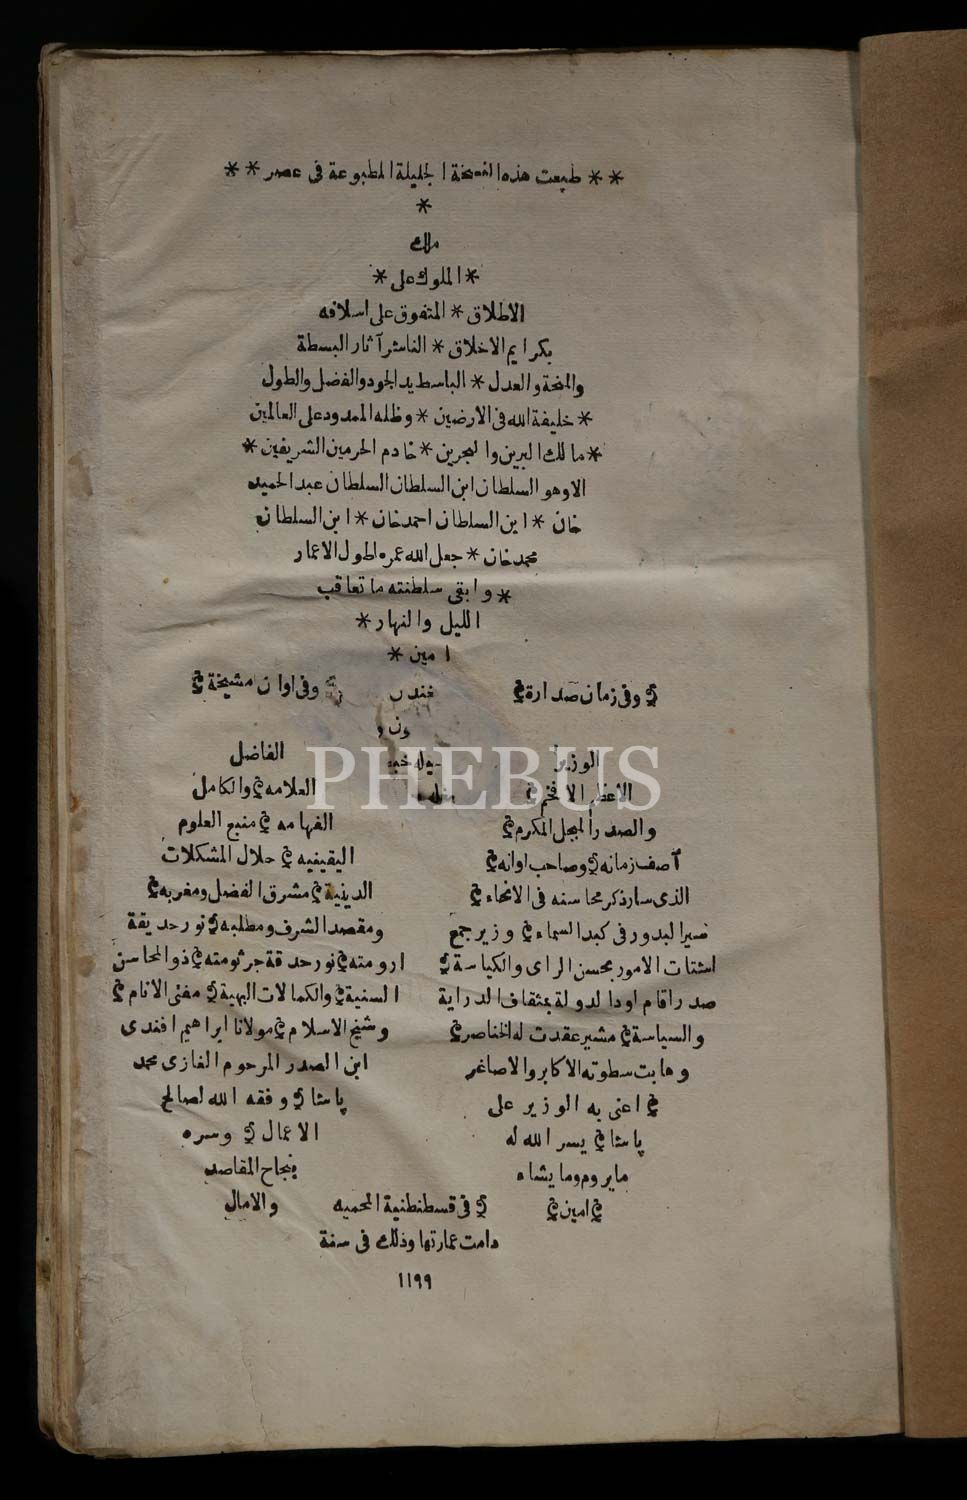 ** طبعت هذه النسخة الجليلة المطبوعة فى عصر **
*
ملك
* الملوك على *
الاطلاق * المتفوق على اسلافه
بكرايم الاخلاق * الناشر آثار البسطة
والمنحة والعدل * الباسط يد الجود والفضل والطول
* خليفة الله فى الارضين * وظله الممدود على العالمين
* مالك البرين والبحرين * خادم الحرمين الشريفين *
الا وهو السلطان ابن السلطان السلطان عبد الحميد
خان * ابن السلطان احمد خان * ابن السلطان
محمد خان * جعل الله عمره اطول الاعمار
* وابقى سلطنته ما تعاقب
الليل والنهار *
امين *
وفى زمان صدارة
الوزير
الاعظم الافخم
والصدر المبجل المكرم
آصف زمانه وصاحب اوانه
الذى سار ذكر محاسنه فى الانحاء
سير البدور فى كبد السماء وزير جمع
اشتات الامور بحسن الراى والكياسة
صدر اقام اود الدولة بمثقاف الدراية
والسياسة مشير عقدت له الخناصر
وهابت سطوته الاكابر والاصاغر
اعنى به الوزير على
پاشا يسر الله له
ما يروم وما يشاء
امين
وفى اوان مشيخة
الفاضل
العلامه والكامل
الفهامه منبع العلوم
اليقينيه حلال المشكلات
الدينية مشرق الفضل ومغربه
ومقصد الشرف ومطلبه نور حديقة
ارومته نور حدقة جرثومته ذو المحاسن
السنية والكمالات البهية مفتى الانام
وشيخ الاسلام مولانا ابراهيم افندى
ابن الصدر المرحوم الغازى محمد
پاشا وفقه الله لصالح
الاعمال وسره
بنجاح المقاصد
والامال
فى قسطنطنية المحميه
دامت عمارتها وذلك فى سنة
١١٩٩
PHEBUS